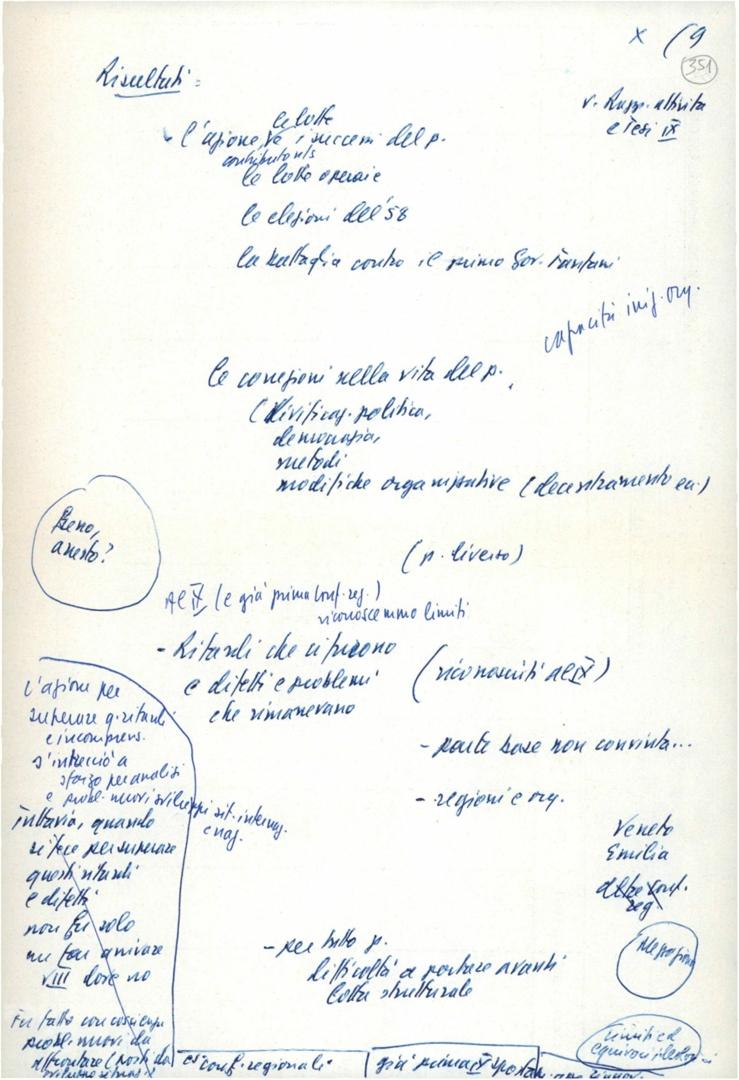 x (9
351
Risultati:
v. Rapp. attività
e Tesi IX
le lotte
l'azione, e i successi del p.
contributo
le lotte operaie
le elezioni del '58
la battaglia contro il primo Gov. Fanfani
capacità iniz. org.
le correzioni nella vita del p.
politica,
democrazia,
metodi
modifiche organizzative (decentramento ecc.)
Bene,
onesto?
(p. diverso)
Al IX (e già prima Conf. reg.)
riconoscemmo limiti
- Ritardi che ci furono
e difetti e problemi
che rimanevano
(riconosciuti al IX)
l'azione per
superare q. ritardi
e incomprens.
s'intrecciò a
sforzo per analisi
e probl. nuovi sviluppi sit. internaz.
e naz.
- parte base non convinta...
- regioni e org.
Veneto
Emilia
altre conf.
reg
tuttavia, quando
si fece per superare
questi ritardi
e difetti
non fu solo
un far arrivare
VIII dove no
- per tutto p.
difficoltà a portare avanti
lotta strutturale
Fu fatto con coscienza
probl. nuovi da
affrontare (posti da
conf. regionali
già prima IX